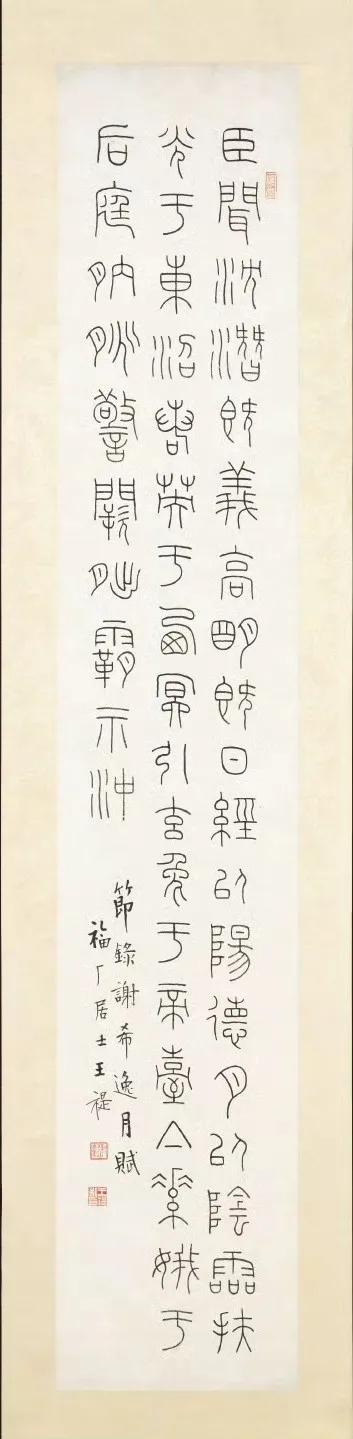 臣聞沈潛既義高明既日經以陽德月以陰霝扶
光于東沼若英于西冥引玄兔于帝臺亼素娥于
后庭朒脁警闕朏霸示沖
節錄謝希逸月賦
福厂居士王禔